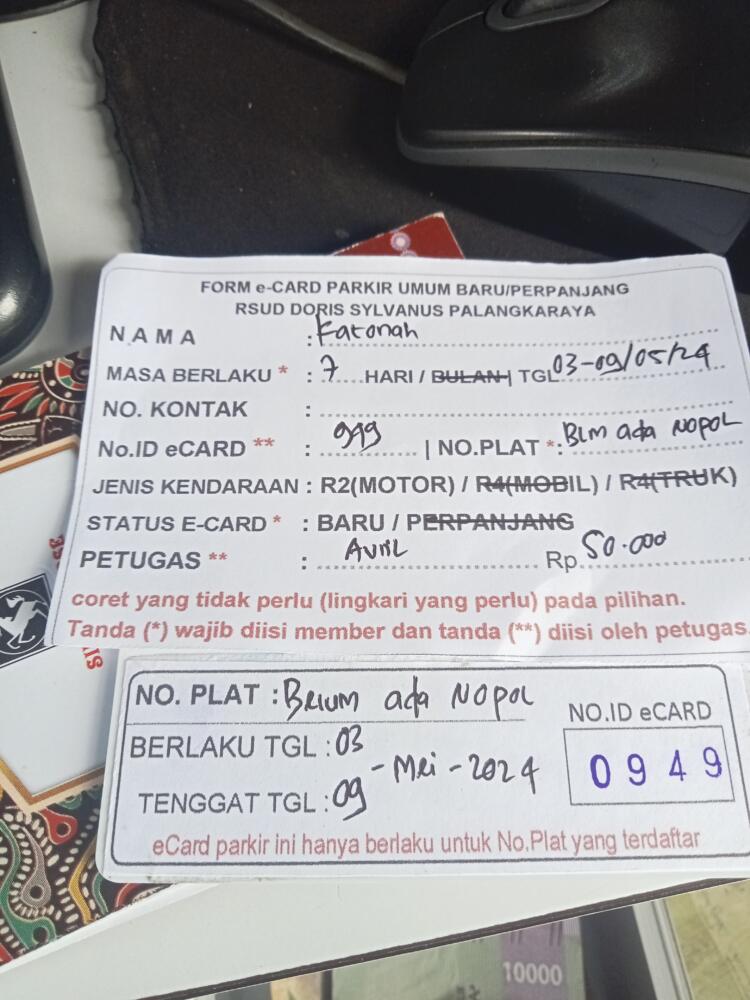 FORM e-CARD PARKIR UMUM BARU/PERPANJANG
RSUD DORIS SYLVANUS PALANGKARAYA
NAMA : Fatonah
MASA BERLAKU * : 7 HARI / BULAN | TGL 03-09/05/24
NO. KONTAK :
No.ID eCARD ** : 949 | NO.PLAT * : Blm ada NOPOL
JENIS KENDARAAN : R2(MOTOR) / R4(MOBIL) / R4(TRUK)
STATUS E-CARD * : BARU / PERPANJANG
PETUGAS ** : AVRIL Rp. 50.000
coret yang tidak perlu (lingkari yang perlu) pada pilihan.
Tanda (*) wajib diisi member dan tanda (**) diisi oleh petugas
NO. PLAT : Belum ada NOPOL
NO.ID eCARD
BERLAKU TGL : 03
0949
- Mei - 2024
TENGGAT TGL : 09
eCard parkir ini hanya berlaku untuk No.Plat yang terdaftar
10000